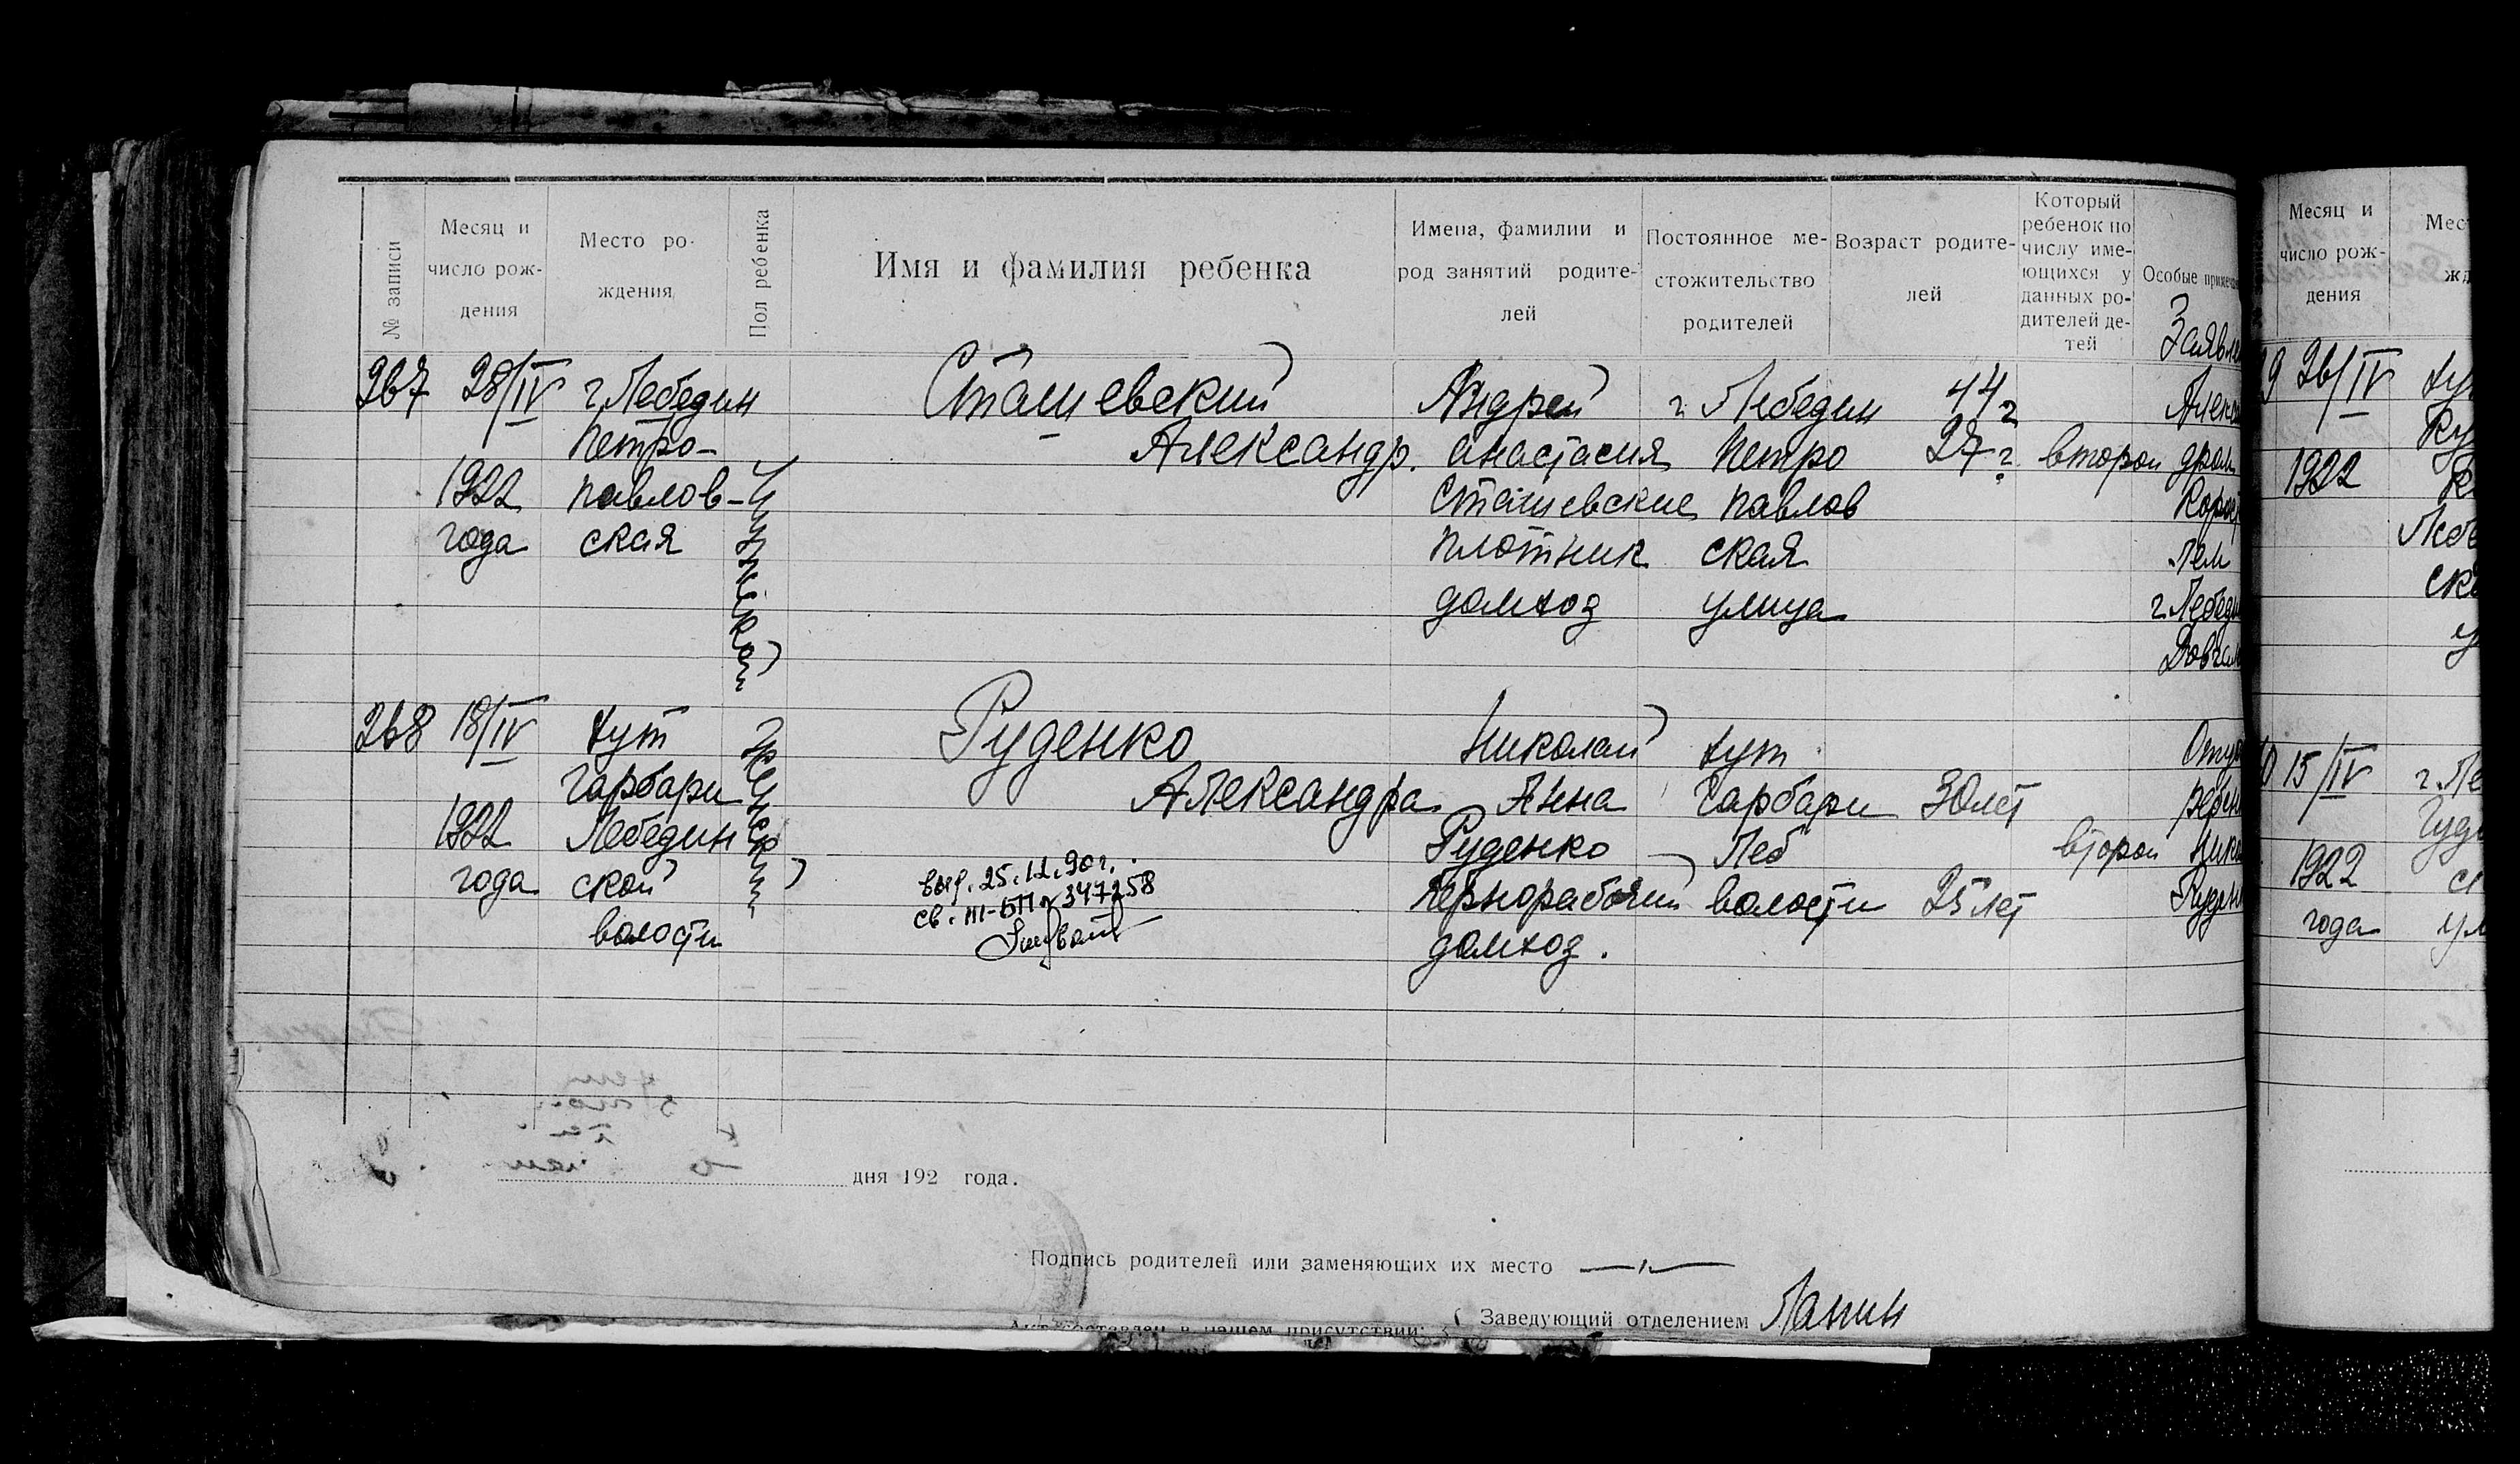 № записи
Месяц и
число рож-
дения
Место ро-
ждения
Пол ребенка
Имя и фамилия ребенка
Имена, фамилии и
род занятий родите-
лей
Постоянное ме-
стожительство
родителей
Возраст родите-
лей
Который
ребенок по
числу име-
ющихся у
данных ро-
дителей де-
тей
Особые примеча
Заявле
267
28/IV
1922
года
г Лебедин
Петро-
павлов-
ская
Мужской
Сташевский
Александр.
Андрей
Анастасия
Сташевские
плотник
домхоз
г Лебедин
Петро
павлов
ская
улица
44 г
27 г.
второй
Алекса
дром
Корос
лем
г. Лебед
268
18/IV
1922
года
хут
Гарбари
Лебедин
ской
волости
Женский
Руденко
Александра
выд. 25.12.90 г.
св. III-БП № 347258
Николай
Анна
Руденко
Чернорабочий
домхоз.
хут
Гарбари
Леб
волости
30 лет
25 лет
второй
Отцо
ребен
Нико
Руден
дня 192 года.
Подпись родителей или заменяющих их место
Акт составлен в нашем присутствии:
Заведующий отделением Панин
Месяц и
число рож-
дения
Мест
жд
9 26/IV
1922
хут
Ку
К
Лебе
ск
у
0 15/IV
1922
года
г. Ле
ск
ул